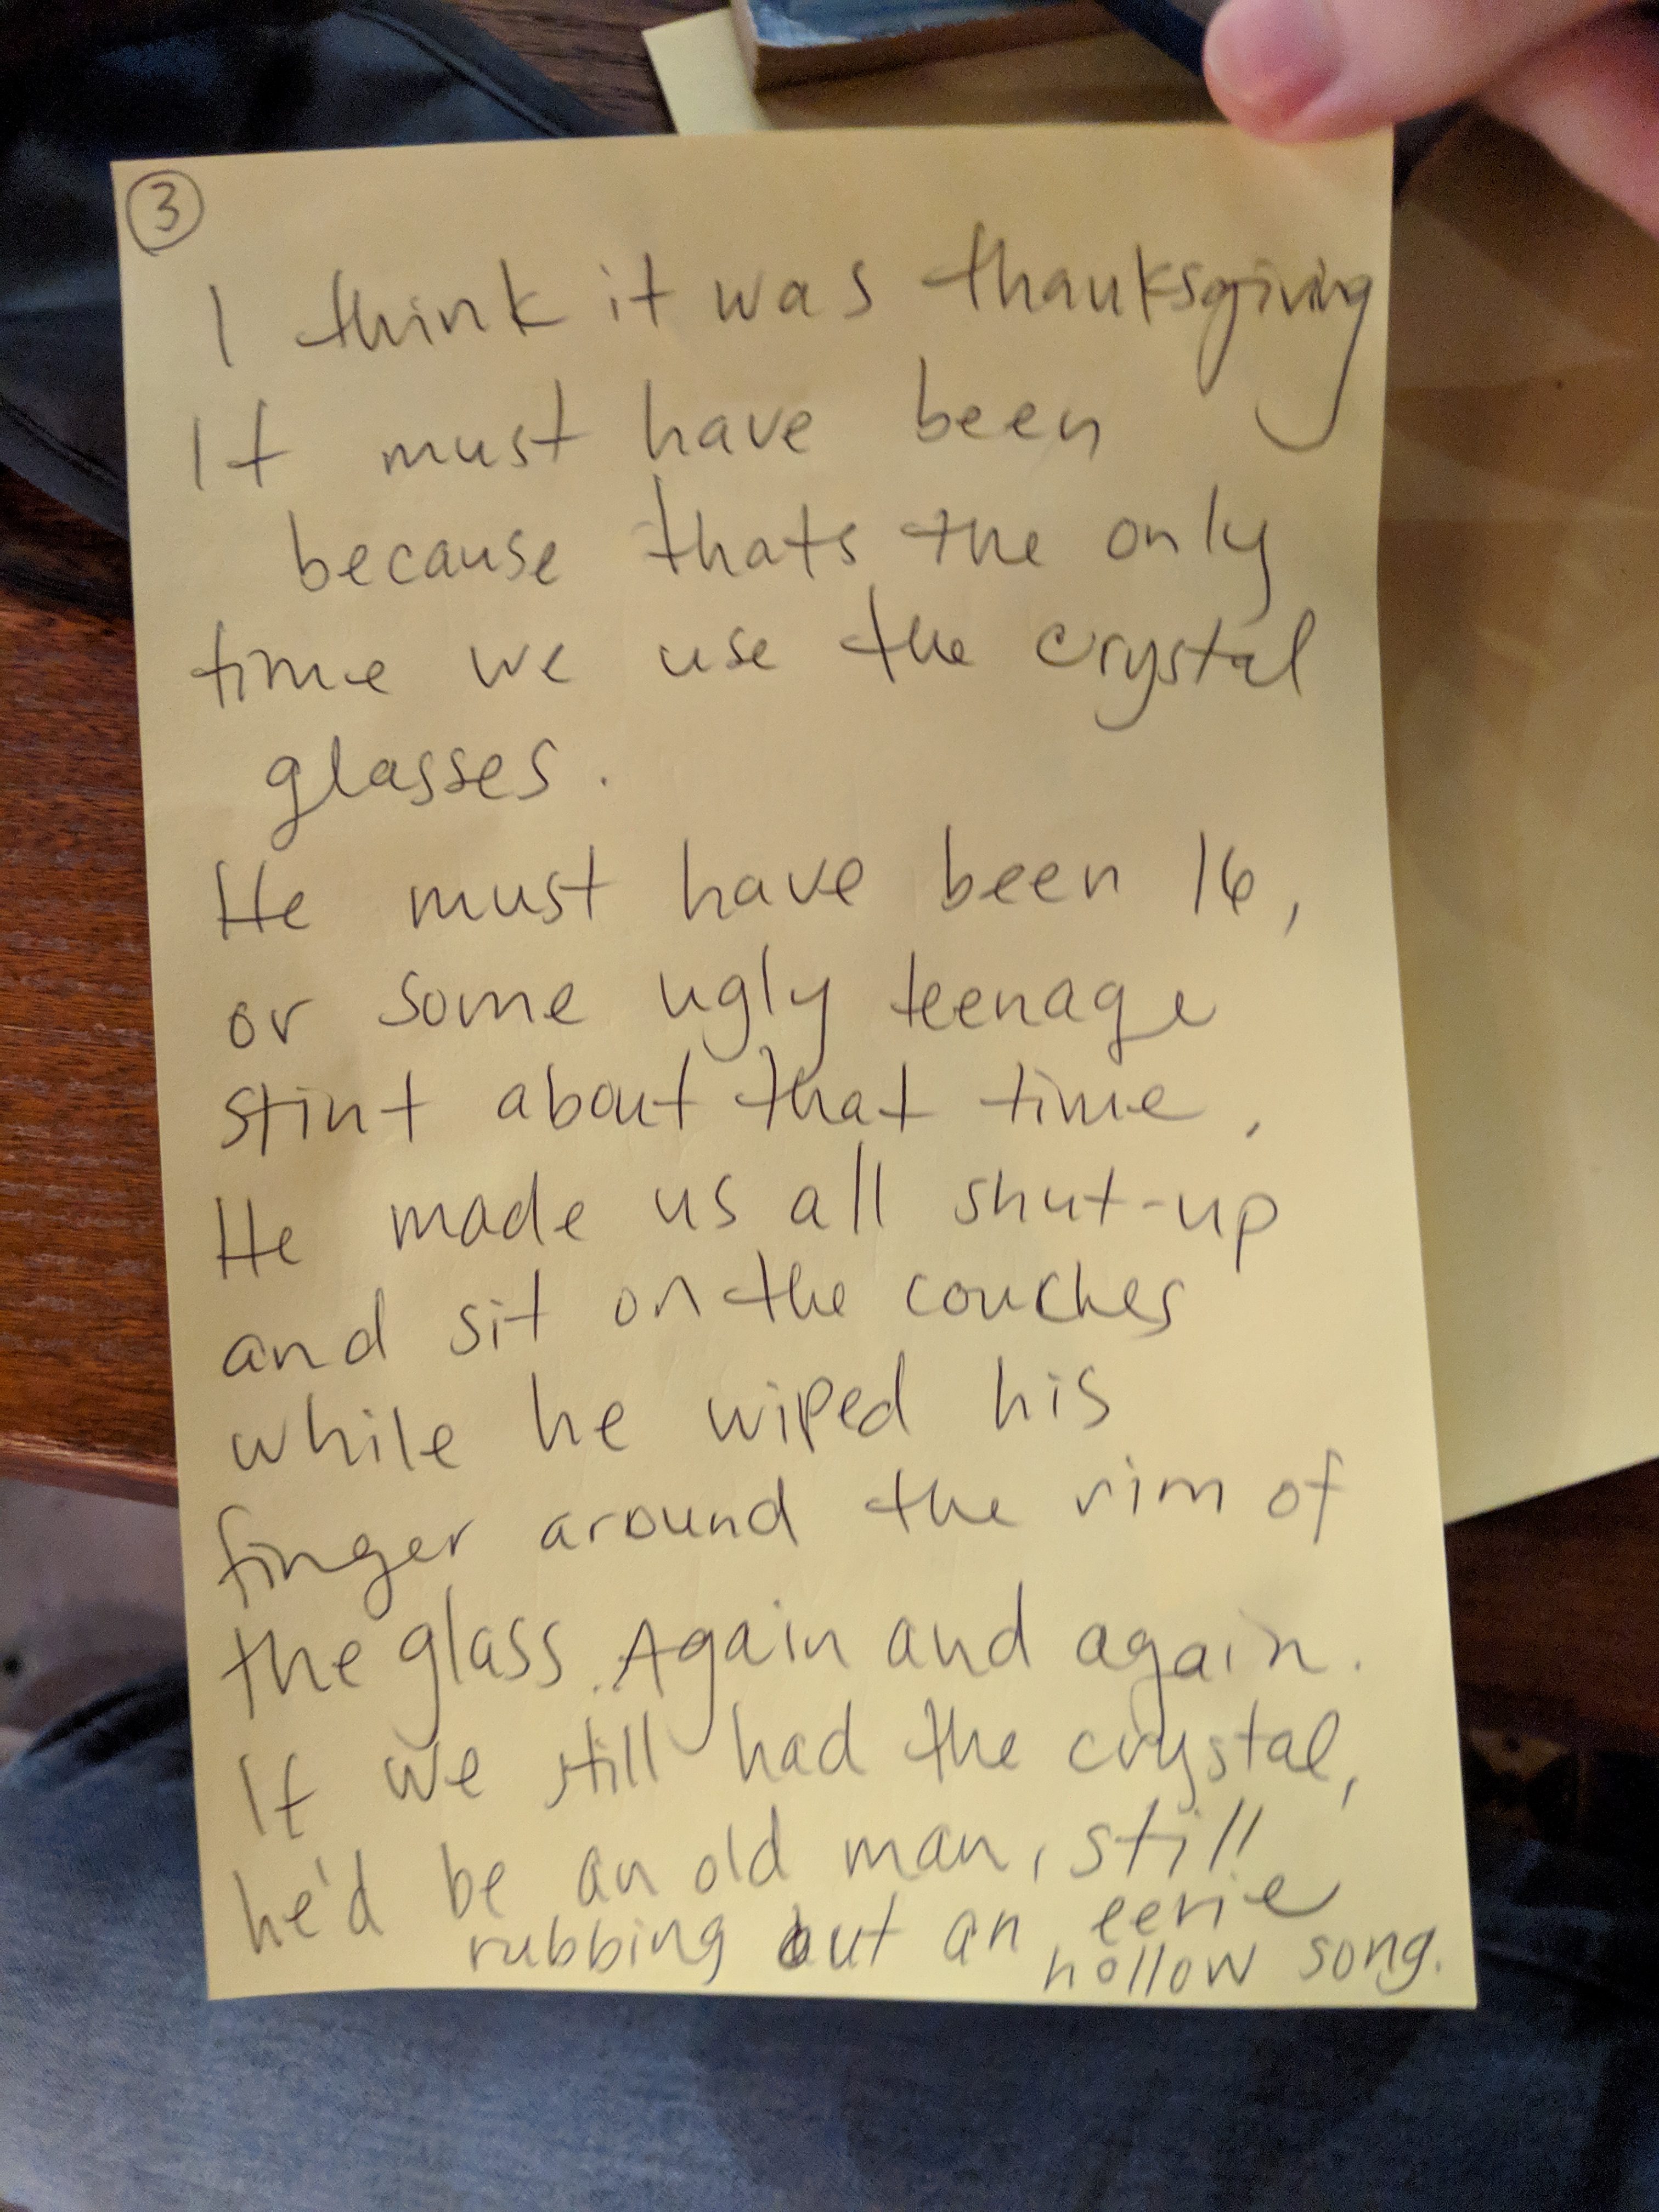 3
I think it was thanksgiving
It must have been
because thats the only
time we use the crystal
glasses.
He must have been 16,
or some ugly teenage
stint about that time.
He made us all shut-up
and sit on the couches
while he wiped his
finger around the rim of
the glass. Again and again.
If we still had the crystal,
he'd be an old man, still
rubbing out an eerie
hollow song.